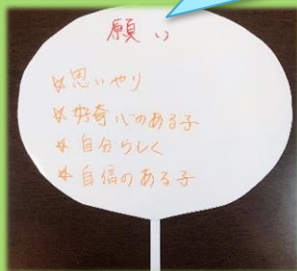 願い
☆思いやり
☆好奇心のある子
☆自分らしく
☆自信のある子